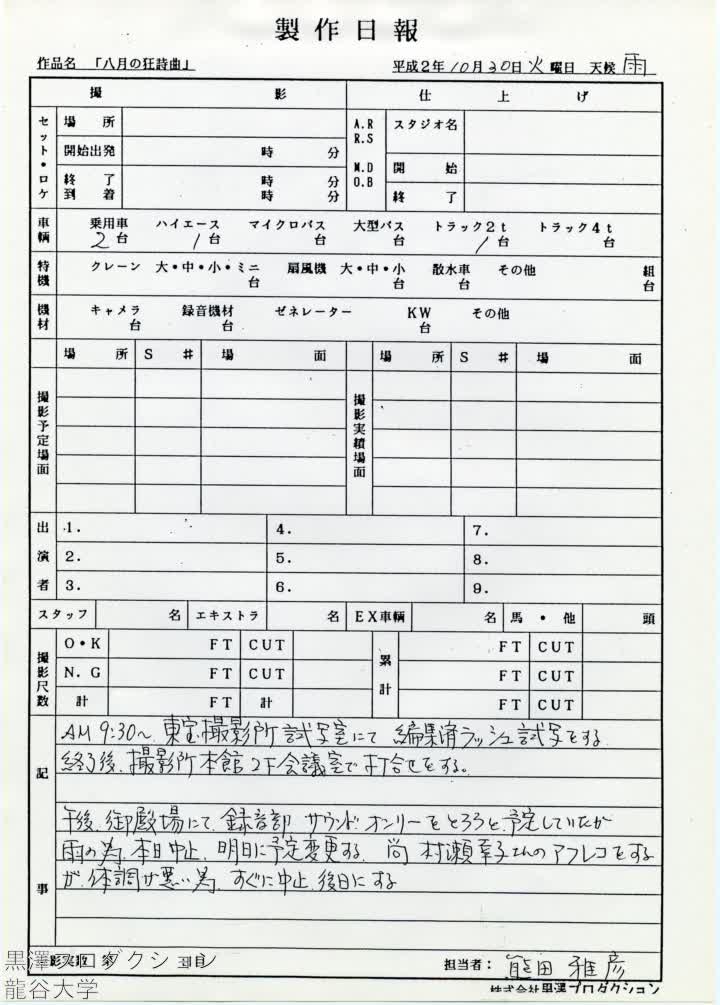 製作日報
作品名 「八月の狂詩曲」 平成2年10月30日火曜日 天候 雨
撮影 仕上げ
セット・ロケ 場所 A.R R.S スタジオ名
開始出発 時 分 M.D O.B 開始
終了到着 時 分 時 分 終了
車輌 乗用車 ハイエース マイクロバス 大型バス トラック2t トラック4t
2台 1台 台 台 1台 台
特機 クレーン 大・中・小・ミニ 扇風機 大・中・小 散水車 その他 組
台 台 台 台
機材 キャメラ 録音機材 ゼネレーター KW その他
台 台 台
場所 S # 場面 場所 S # 場面
撮影予定場面 撮影実績場面
出演者 1. 4. 7.
2. 5. 8.
3. 6. 9.
スタッフ 名 エキストラ 名 EX車輌 名 馬・他 頭
撮影尺数 O・K FT CUT 累計 FT CUT
N.G FT CUT FT CUT
計 FT 計 FT CUT
記事
AM 9:30~ 東宝撮影所試写室にて 編集済ラッシュ試写をする
終了後、撮影所本館2F会議室で打合せをする。
午後、御殿場にて、録音部 サウンドオンリーをとろうと予定していたが
雨の為、本日中止、明日に予定変更する、尚 村瀬幸子さんのアフレコをする
が、体調が悪い為、すぐに中止、後日にする
担当者: 熊田雅彦
株式会社黒澤プロダクション
黒澤プロダクション
龍谷大学